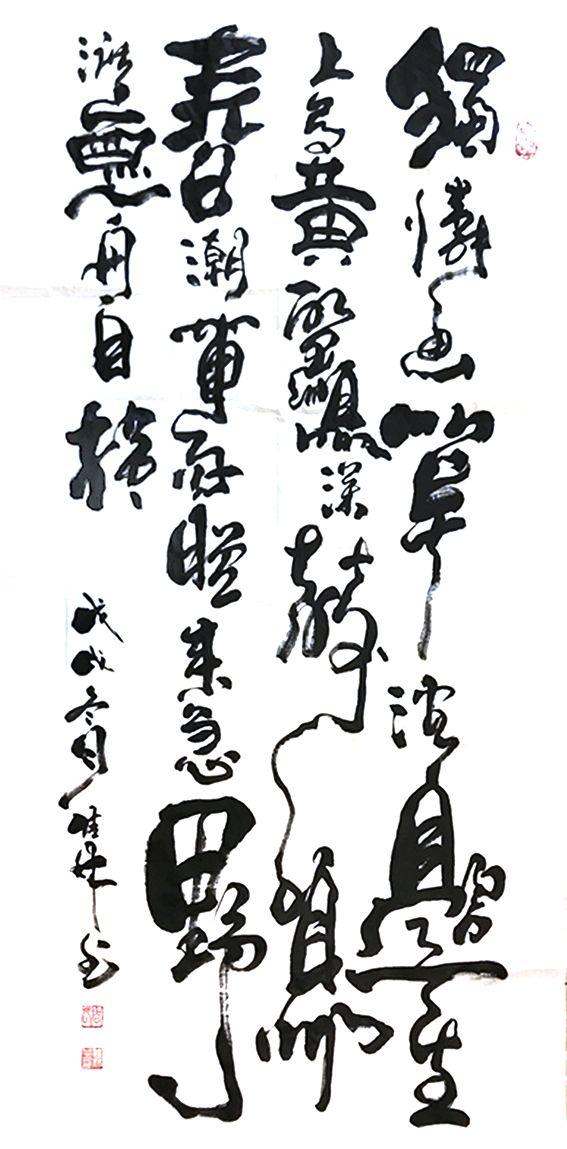 獨憐幽草澗邊生
上有黃鸝深樹鳴
春潮帶雨晚來急野
渡無人舟自橫
戊戌冬月